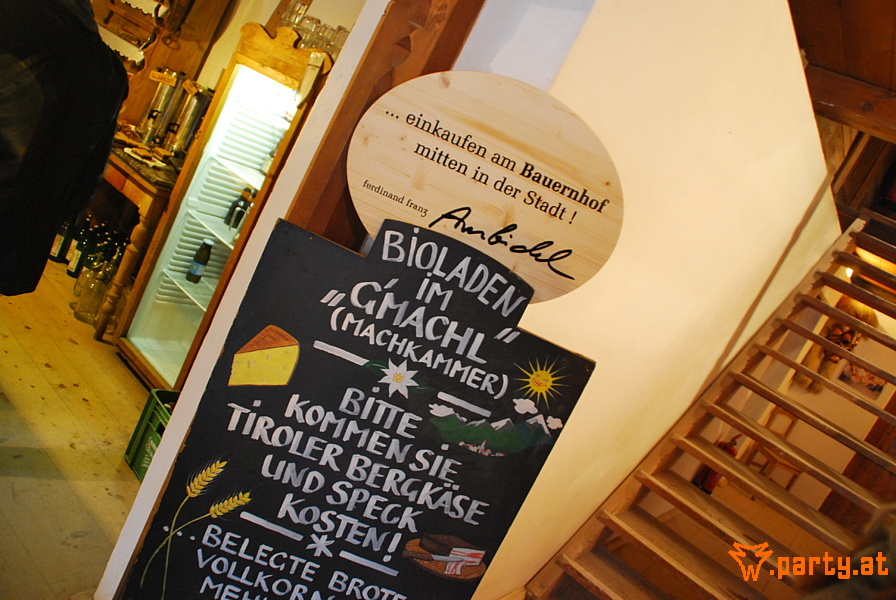 ... einkaufen am Bauernhof
mitten in der Stadt !
ferdinand franz
Ambichl
BIOLADEN
IM
„G'MACHL“
(MACHKAMMER)
BITTE
KOMMEN SIE
TIROLER BERGKÄSE
UND SPECK
KOSTEN!
..BELEGTE BROTE
VOLLKORN
w.party.at